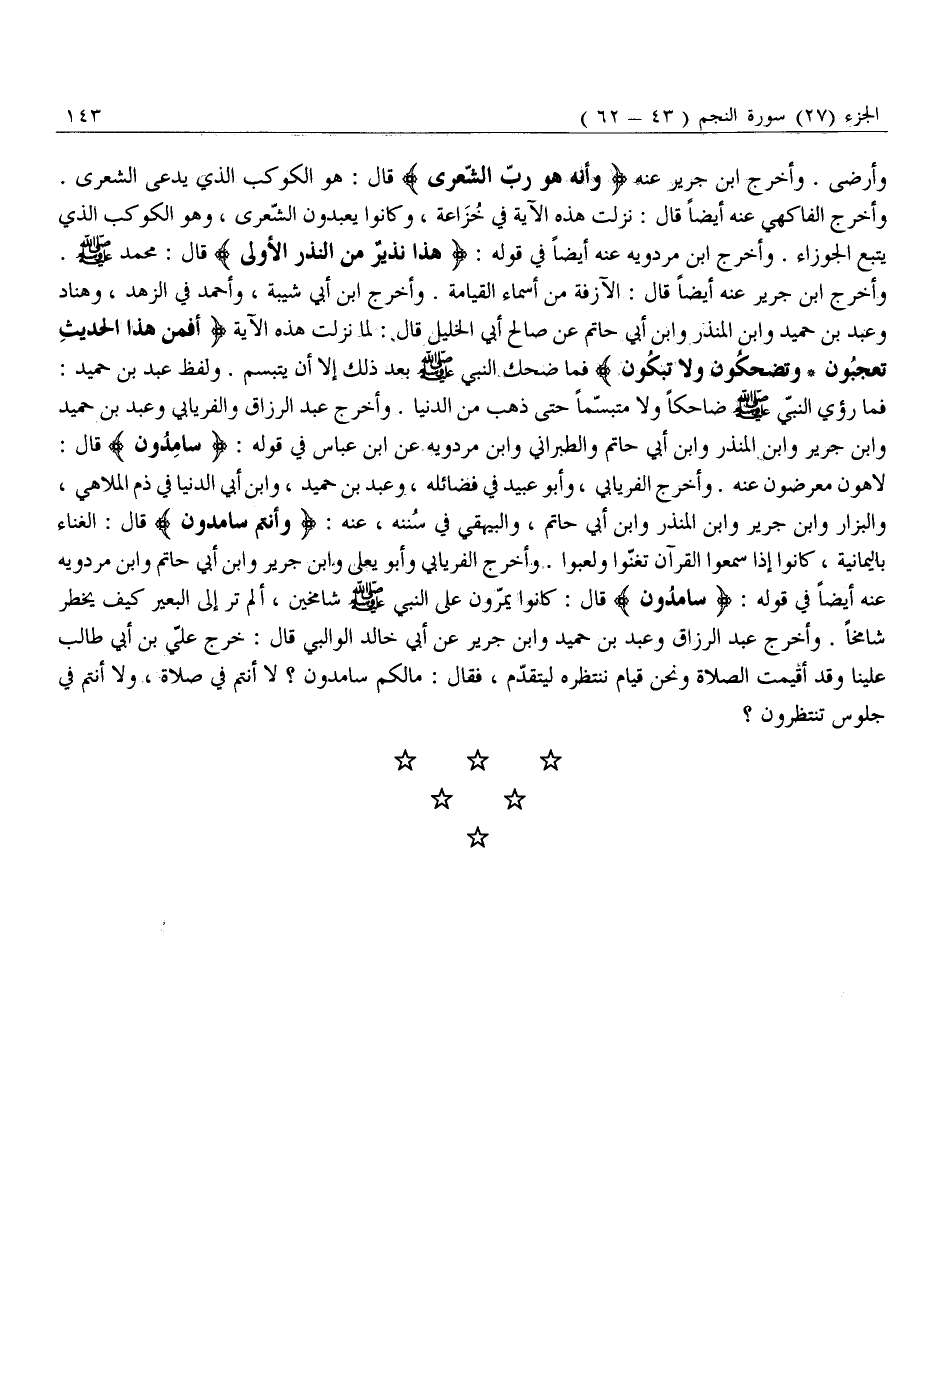 الجزء (٢٧) سورة النجم ( ٤٣ – ٦٢ ) ١٤٣
وأرضى . وأخرج ابن جرير عنه ﴿ وأنه هو ربّ الشّعرى ﴾ قال : هو الكوكب الذي يدعى الشعرى .
وأخرج الفاكهي عنه أيضاً قال : نزلت هذه الآية في خُزَاعة ، وكانوا يعبدون الشّعرى ، وهو الكوكب الذي
يتبع الجوزاء . وأخرج ابن مردويه عنه أيضاً في قوله : ﴿ هذا نذيرٌ من النذر الأولى ﴾ قال : محمد ﷺ .
وأخرج ابن جرير عنه أيضاً قال : الآزفة من أسماء القيامة . وأخرج ابن أبي شيبة ، وأحمد في الزهد ، وهناد
وعبد بن حميد وابن المنذر وابن أبي حاتم عن صالح أبي الخليل قال : لما نزلت هذه الآية ﴿ أفمن هذا الحديثِ
تعجبُون * وتضحكُون ولا تبكُون ﴾ فما ضحك النبي ﷺ بعد ذلك إلا أن يتبسم . ولفظ عبد بن حميد :
فما رؤي النبيّ ﷺ ضاحكاً ولا متبسّماً حتى ذهب من الدنيا . وأخرج عبد الرزاق والفريابي وعبد بن حميد
وابن جرير وابن المنذر وابن أبي حاتم والطبراني وابن مردويه عن ابن عباس في قوله : ﴿ سامِدُون ﴾ قال :
لاهون معرضون عنه . وأخرج الفريابي ، وأبو عبيد في فضائله ، وعبد بن حميد ، وابن أبي الدنيا في ذم الملاهي ،
والبزار وابن جرير وابن المنذر وابن أبي حاتم ، والبيهقي في سُننه ، عنه : ﴿ وأنتم سامدون ﴾ قال : الغناء
باليمانية ، كانوا إذا سمعوا القرآن تغنّوا ولعبوا . وأخرج الفريابي وأبو يعلى وابن جرير وابن أبي حاتم وابن مردويه
عنه أيضاً في قوله : ﴿ سامدُون ﴾ قال : كانوا يمرّون على النبي ﷺ شامخين ، ألم تر إلى البعير كيف يخطر
شامخاً . وأخرج عبد الرزاق وعبد بن حميد وابن جرير عن أبي خالد الوالبي قال : خرج عليّ بن أبي طالب
علينا وقد أقيمت الصلاة ونحن قيام ننتظره ليتقدّم ، فقال : مالكم سامدون ؟ لا أنتم في صلاة ، ولا أنتم في
جلوس تنتظرون ؟
☆ ☆ ☆
☆ ☆
☆